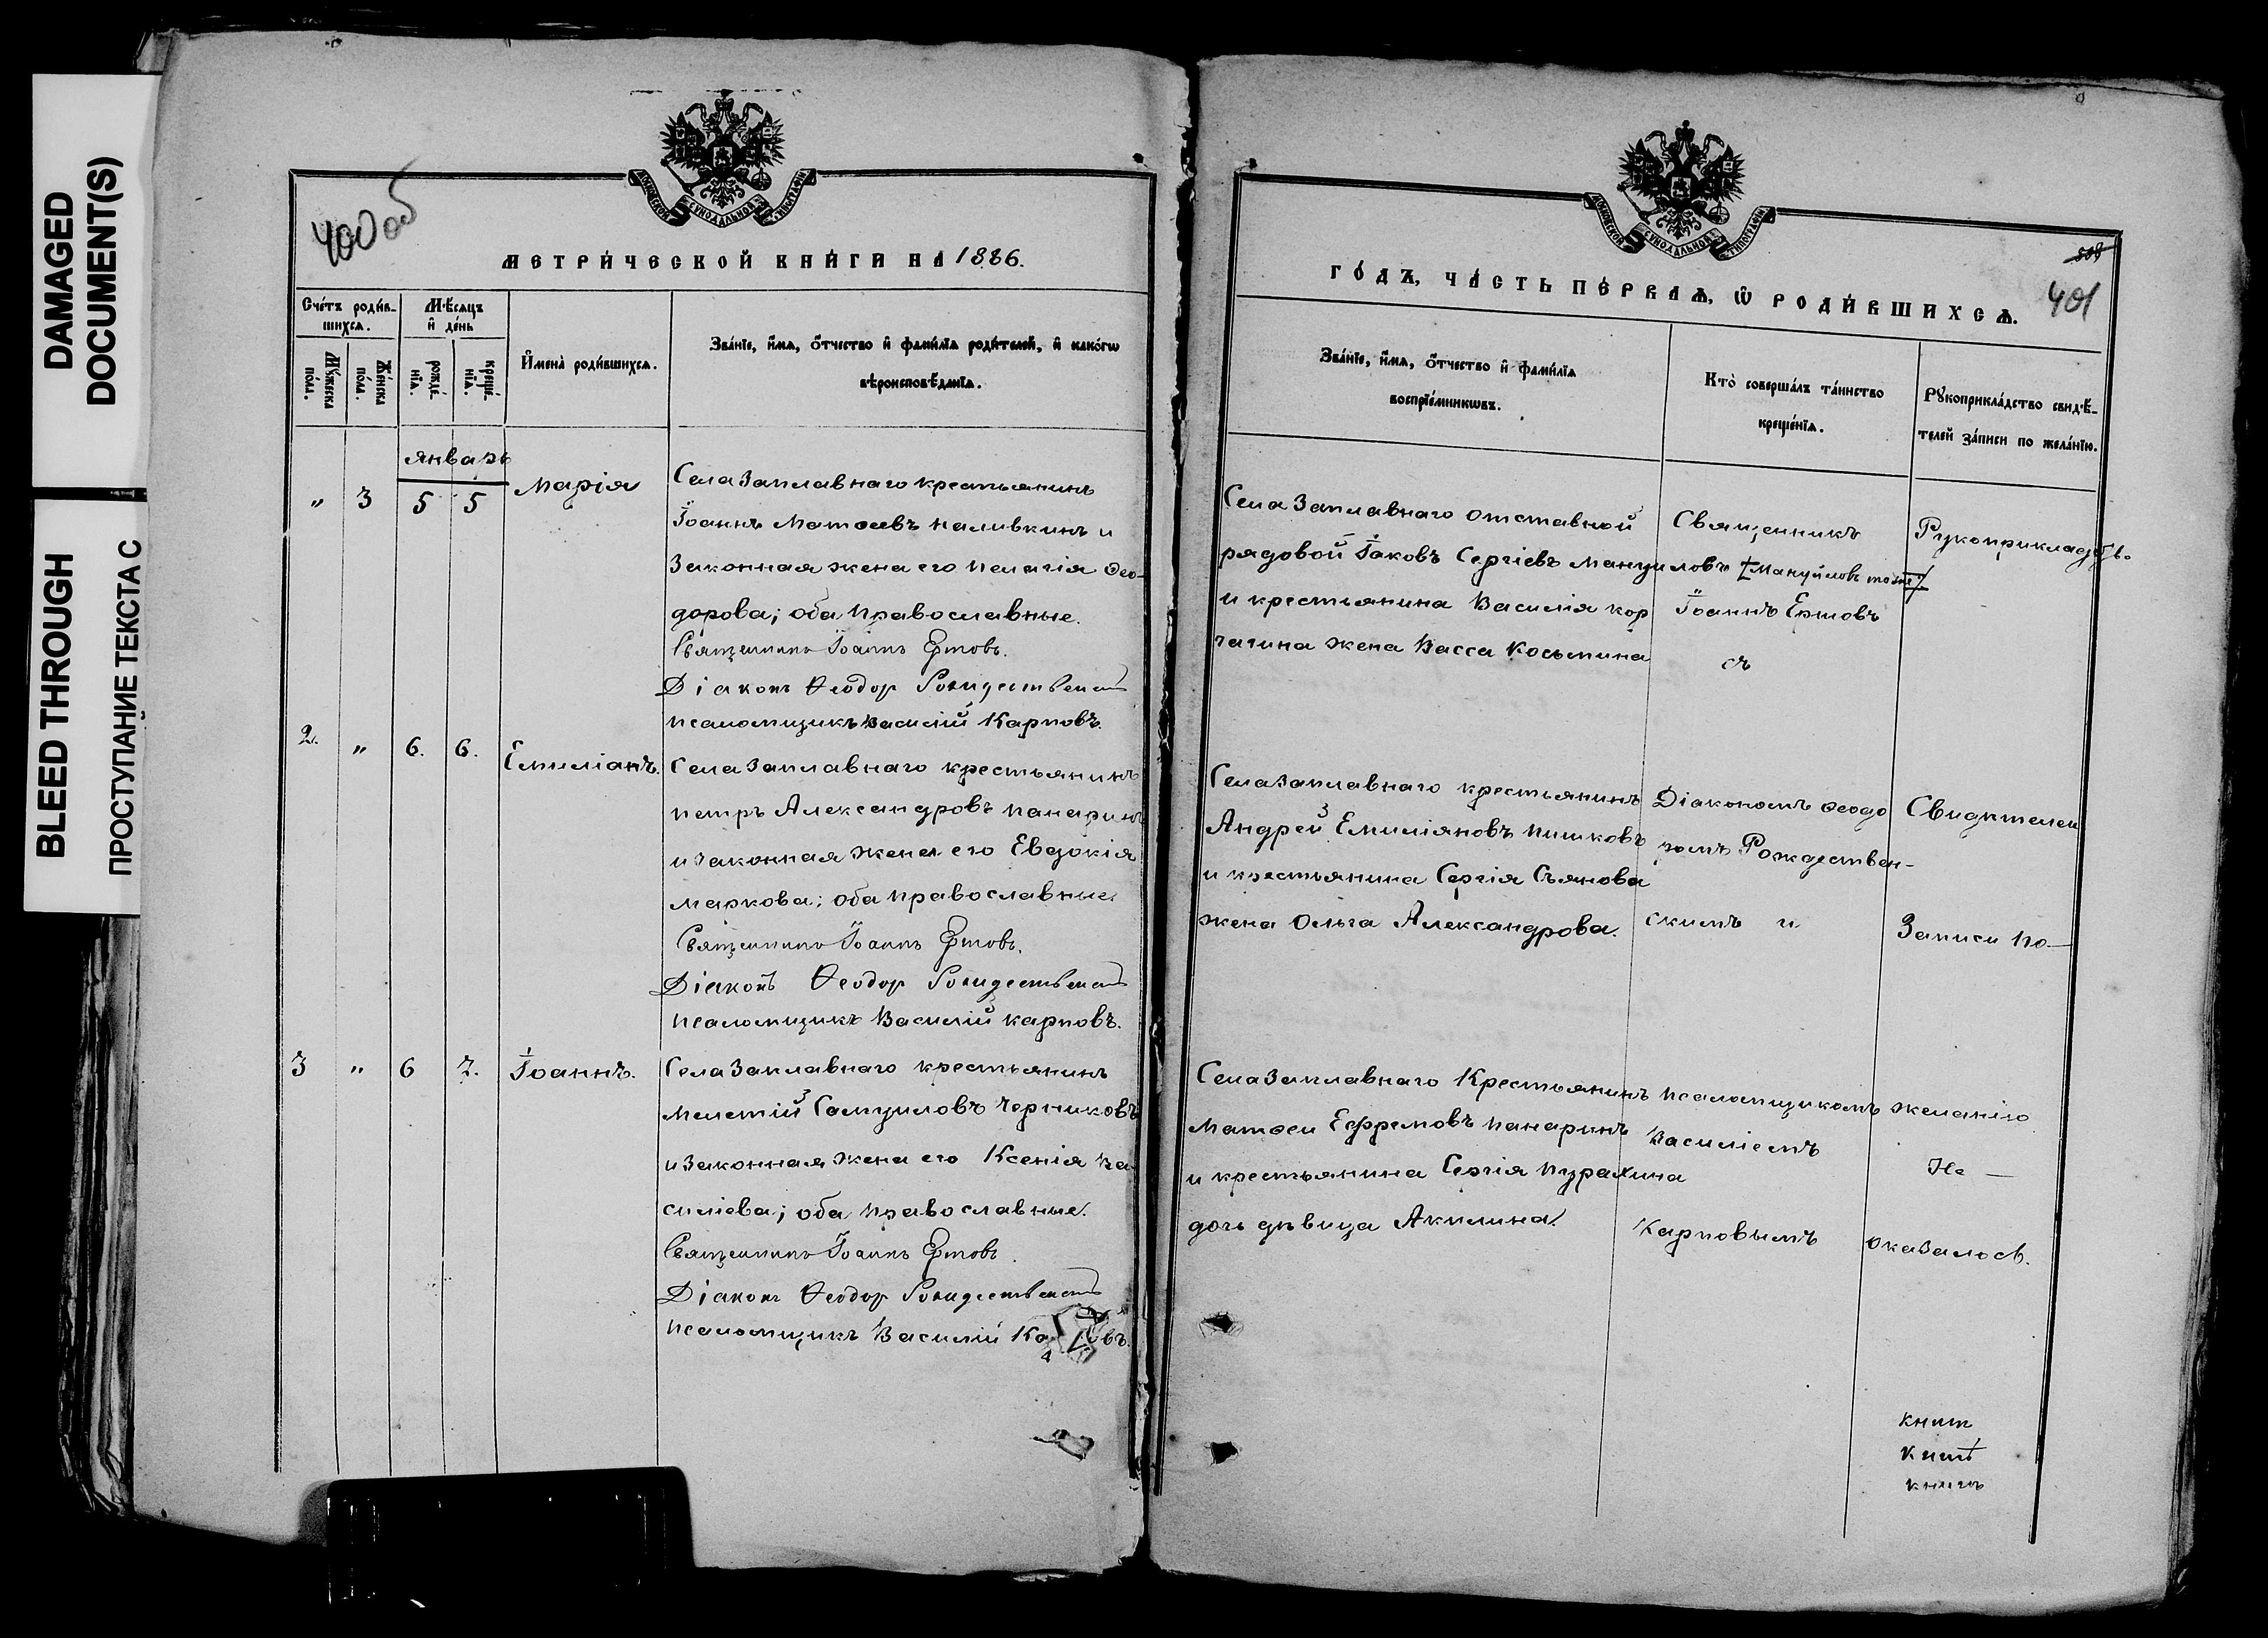 DAMAGED
DOCUMENT(S)
BLEED THROUGH
ПРОСТУПАНИЕ ТЕКСТА С
400 об
МОСКОВСКОЙ СѴНОДАЛЬНОЙ ТИПОГРАФІИ
МЕТРИ́ЧЕСКОЙ КНИ́ГИ НА 1886.
Сче́тъ роди́в-
шихсѧ.
Мѣ́сѧцъ
и҆ де́нь
Мꙋ́жеска
по́ла.
Же́нска
по́ла.
рожде́-
нїѧ.
креще́-
нїѧ.
И҆мена̀ роди́вшихсѧ.
Зва́нїе, и҆́мѧ, ѻ҆́тчество и҆ фами́лїѧ роди́телей, и҆ како́гѡ
вѣроисповѣ́данїѧ.
Январь
„ 3 5 5 Марія
Села Заплавнаго крестьянинъ
Іоаннъ Матѳеевъ Наливкинъ и
Законная жена его Пелагія Ѳео-
дорова; оба православные.
Священникъ Іоаннъ Ертовъ.
Діаконъ Ѳеодор Рождественскій
Псаломщикъ Василій Карповъ.
2. „ 6. 6. Емиліанъ.
Села Заплавнаго крестьянинъ
Петръ Александровъ Панаринъ
и законная жена его Евдокія
Маркова; оба православные.
Священникъ Іоаннъ Ертовъ.
Діаконъ Ѳеодор Рождественскій
Псаломщикъ Василій Карповъ.
3 „ 6 7. Іоаннъ.
Села Заплавнаго крестьянинъ
Мелетій Самуиловъ Черниковъ
и законная жена его Ксенія Ва
силіева; оба православные.
Священникъ Іоаннъ Ертовъ.
Діаконъ Ѳеодор Рождественскій
Псаломщикъ Василій Ка овъ.
МОСКОВСКОЙ СѴНОДАЛЬНОЙ ТИПОГРАФІИ
508
401
ГО́ДЪ, ЧА́СТЬ ПЕ́РВАѦ, Ѡ҆ РОДИ́ВШИХСѦ.
Зва́нїе, и҆́мѧ, ѻ҆́тчество и҆ фами́лїѧ
воспрїе́мникѡвъ.
Кто̀ соверша́лъ та́инство
креще́нїѧ.
Рꙋкоприкла́дство свидѣ́-
телей за́писи по жела́нїю.
Села Заплавнаго отставной
рядовой Іаковъ Сергіевъ Мануиловъ
и крестьянина Василія Кор
чагина жена Васса Косьмина
Священникъ
Мануйловъ тоже
Іоаннъ Ертовъ
съ
Рукоприкладств.
Села Заплавнаго крестьянинъ
Андрей Емиліановъ Пишковъ
и крестьянина Сергія Съянова
жена Ольга Александрова.
Діакономъ Ѳеодо
ромъ Рождествен-
скимъ и
Свидѣтелей
Записи по—
Села Заплавнаго Крестьянинъ
Матѳей Ефремовъ Панаринъ
и крестьянина Сергія Пурахина
дочь дѣвица Акилина.
Псаломщикомъ
Василіемъ
Карповымъ
желанію
Не —
оказалось.